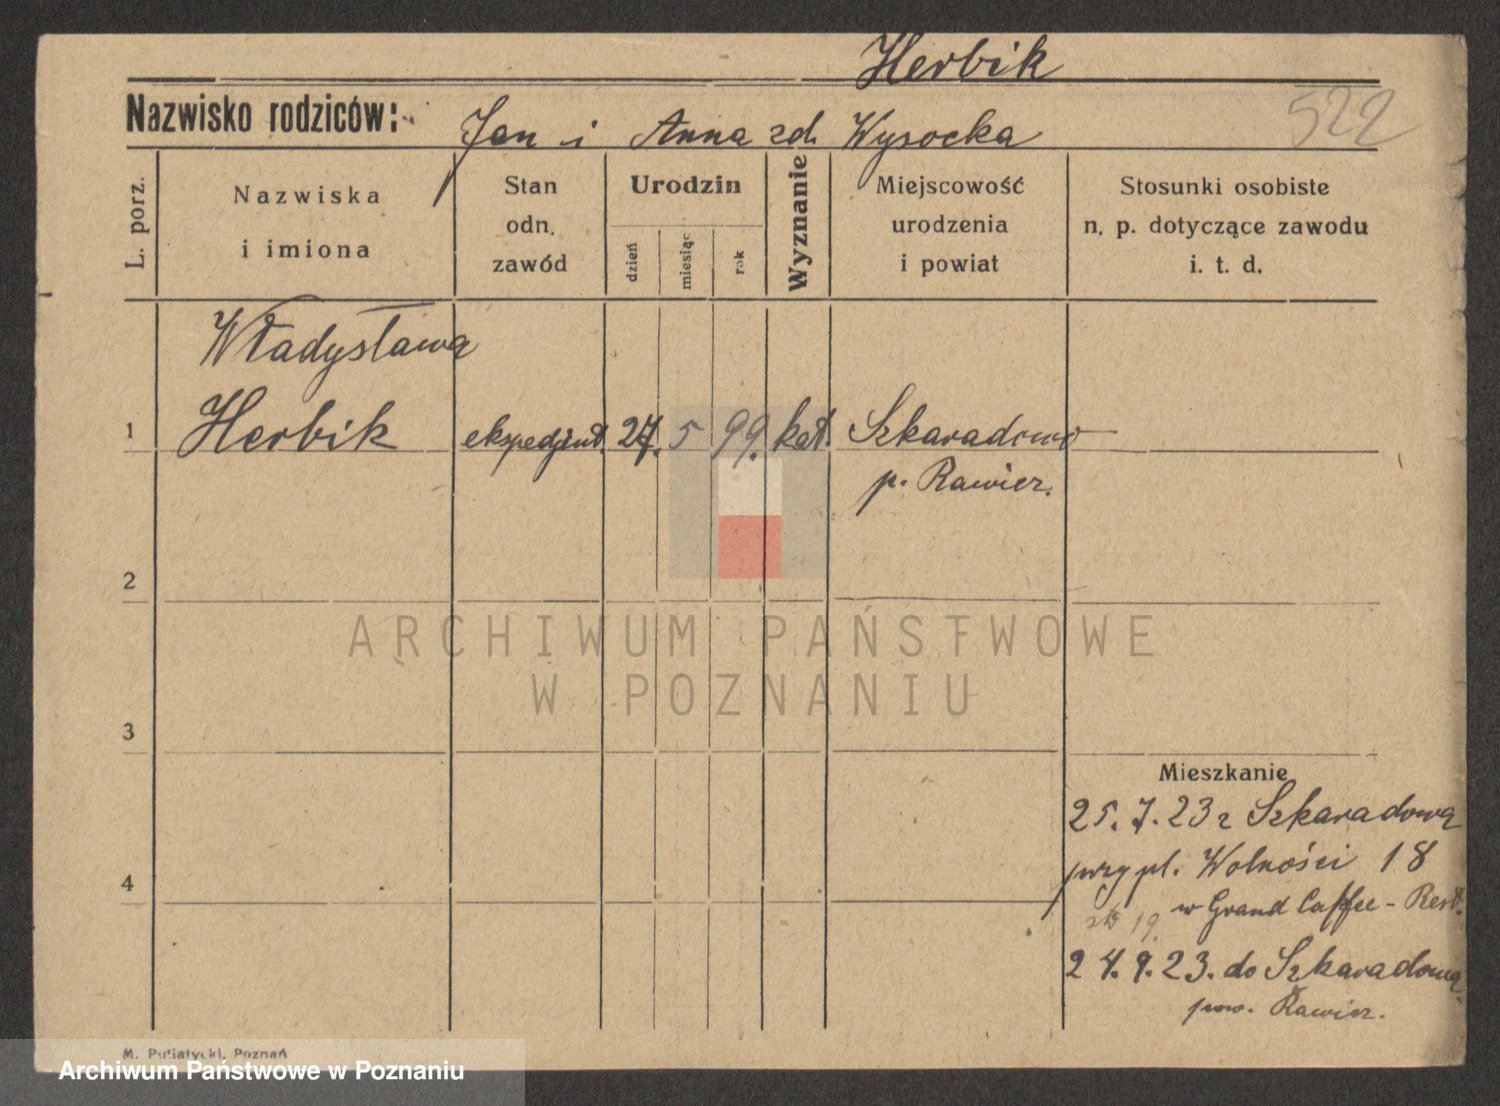 Herbik
Nazwisko rodziców: Jan i Anna zd. Wysocka
522
L. porz.
Nazwiska
i imiona
Stan
odn.
zawód
Urodzin
dzień
miesiąc
rok
Wyznanie
Miejscowość
urodzenia
i powiat
Stosunki osobiste
n. p. dotyczące zawodu
i. t. d.
Władysława
1 Herbik ekspedjent. 27. 5 99. kat. Szkaradowo
p. Rawicz.
2
3
4
Mieszkanie
25.7.23 z Szkaradowa
przy pl. Wolności 18
w Grand Caffee - Rest.
19.
24.9.23. do Szkaradowa
pow. Rawicz.
M. Putiatycki, Poznań
ARCHIWUM PAŃSTWOWE
W POZNANIU
Archiwum Państwowe w Poznaniu